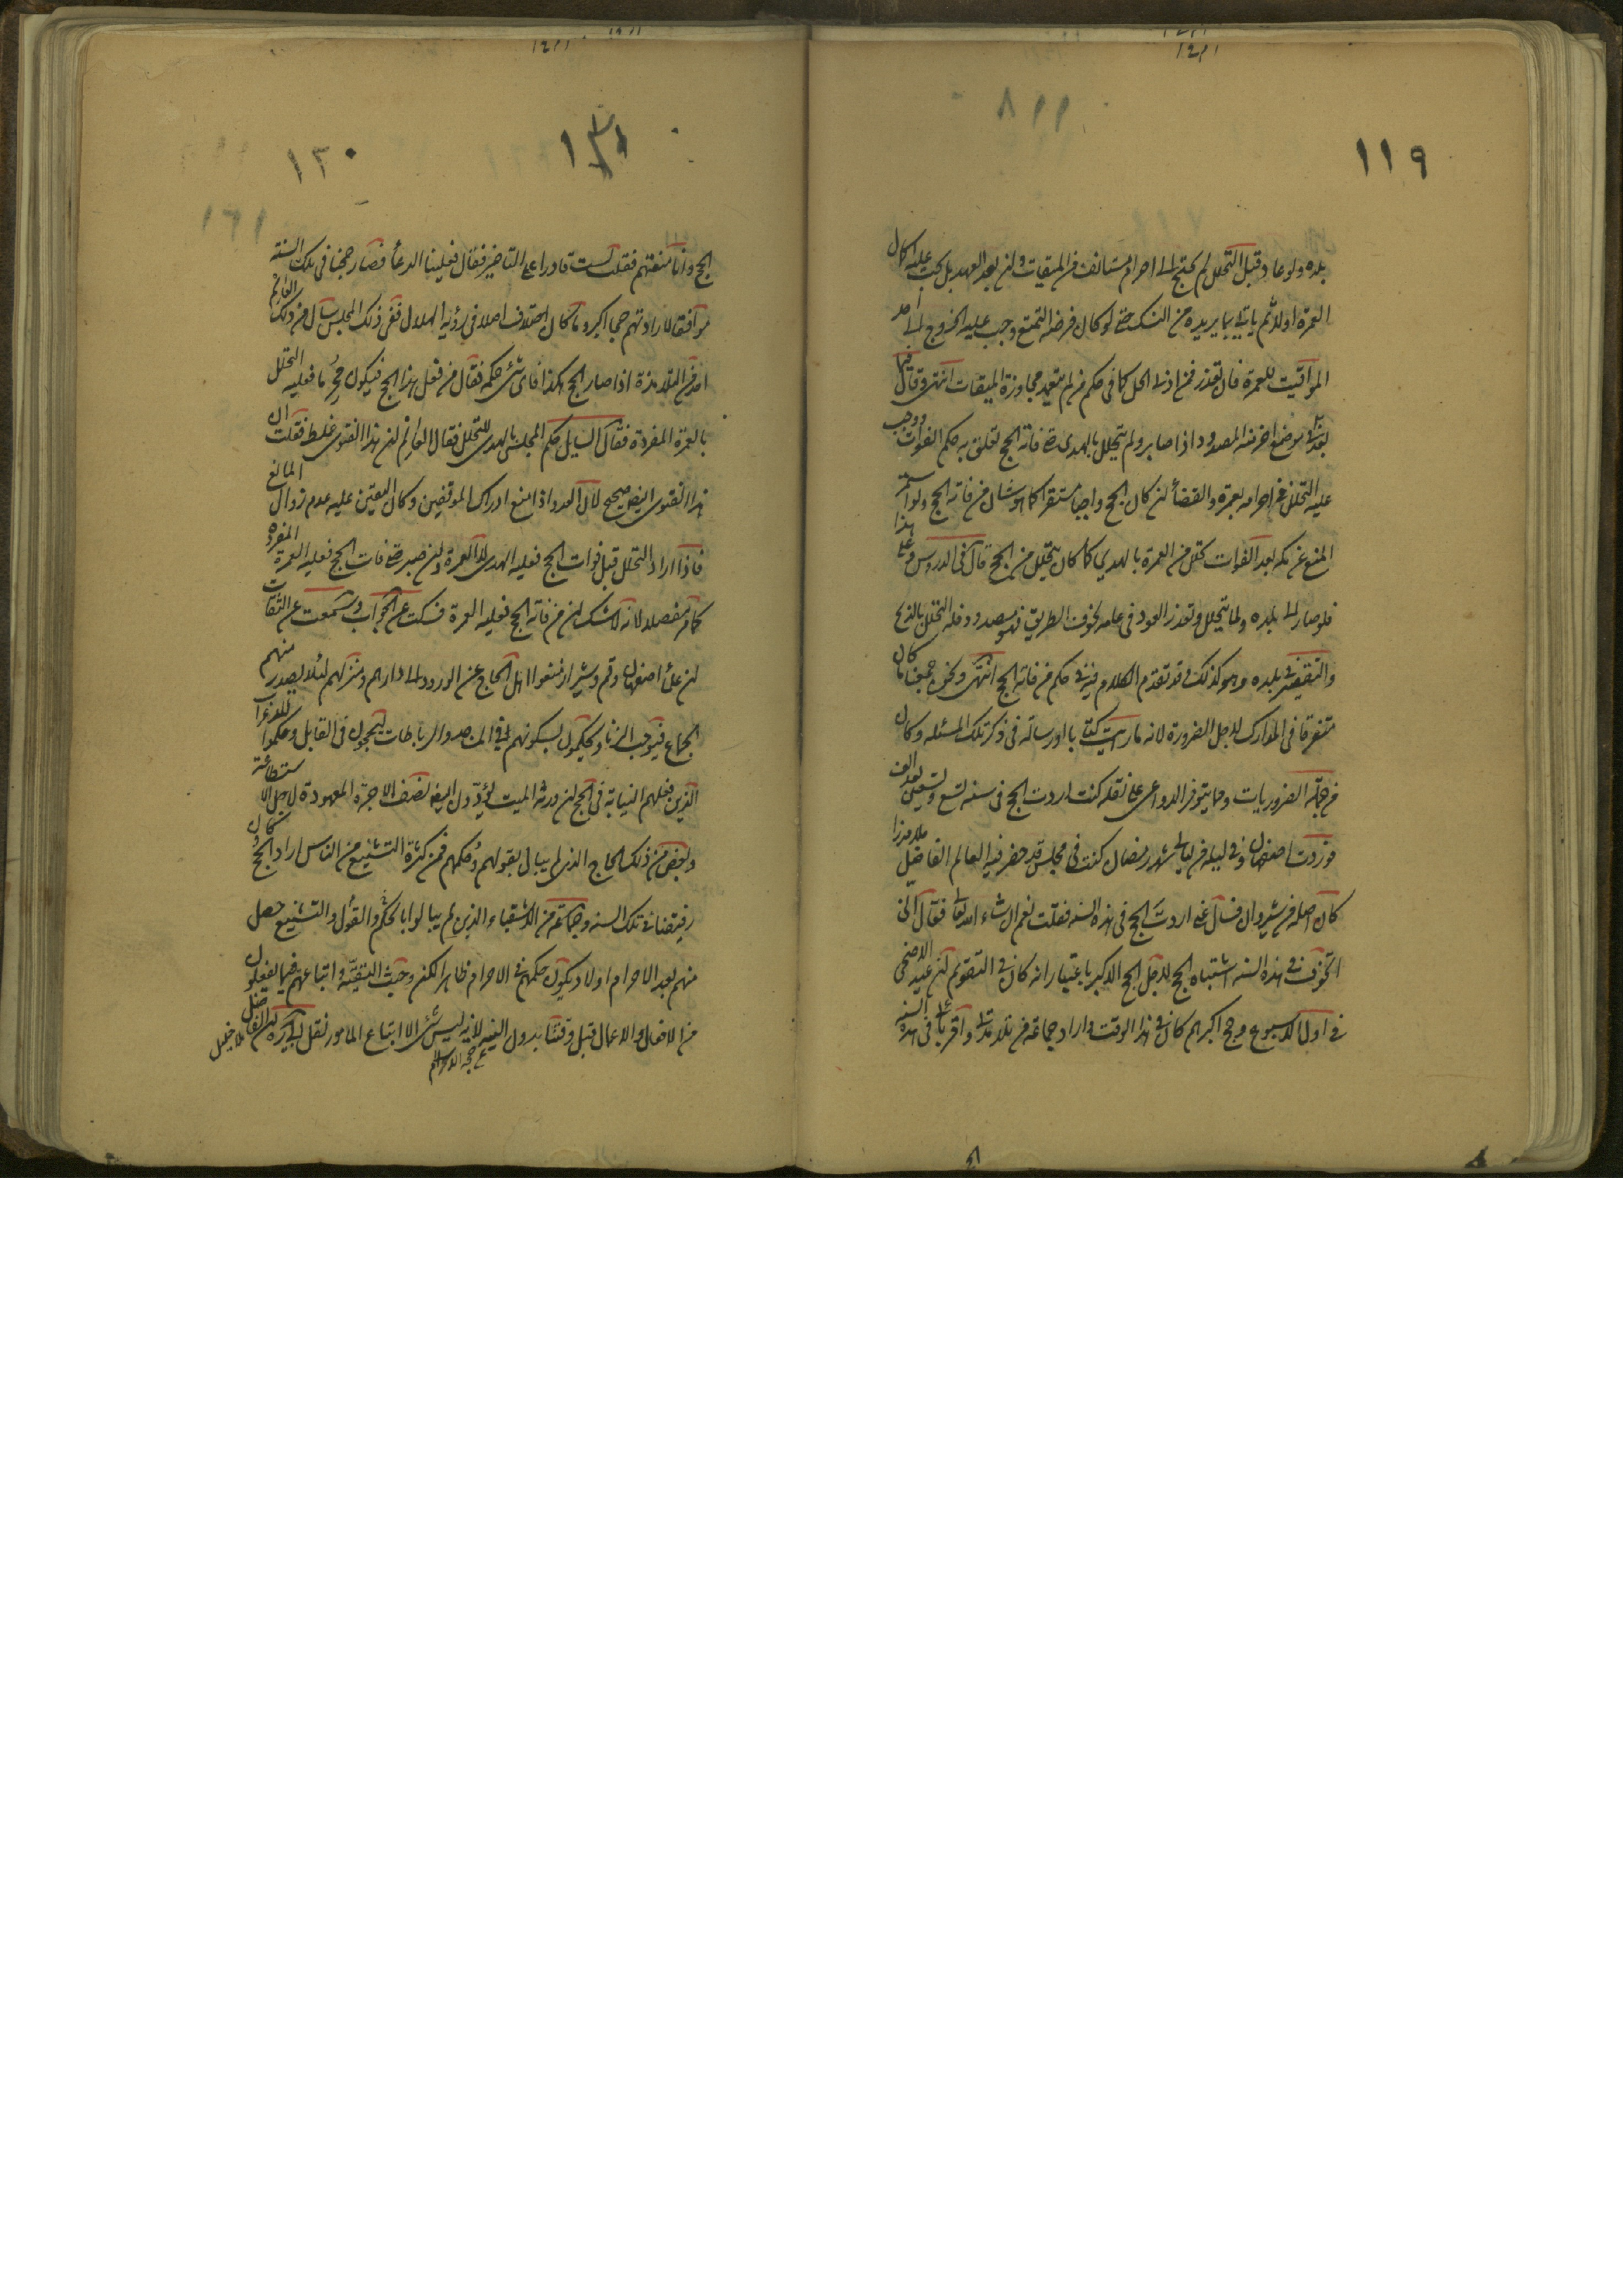 ١١٩
بلده ولو عاد قبل التحلل لم يحتج الى احرام مستانف من الميقات وان بعد العهد بل يجب عليه اكمال
العمرة اولا ثم ياتى بما يريده من النسك حتى لو كان فرضه التمتع وجب عليه الخروج الى احد
المواقيت للعمرة فان تعذر فمن ادنى الحل كما فى حكم من لم يتعمد مجاوزة الميقات انتهى وقال فيها
بعد فى موضع اخر منه المصدود اذا صابر ولم يتحلل بالهدى حتى فاته الحج تعلق به حكم الفوات ووجب
عليه التحلل من احرامه بعمرة والقضأ ان كان الحج واجبا مستقرا كما هو شان من فاته الحج ولو استمر
المنع عن مكه بعد الفوات تحلل من العمرة بالهدي كما كان يتحلل من الحج قال فى الدروس وعلى هذا
فلو صار الى بلده ولما يتحلل وتعذر العود فى عامه لخوف الطريق فهو مصدود فله التحلل بالذبح
والتقصير فى بلده وهو كذلك وقد تقدم الكلام فيه فى حكم من فاته الحج انتهى ونحن جمعنا ما كان
متفرقا فى المدارك لاجل الضرورة لانه ما رايت كتابا او رسالة فى ذكر تلك المسئله وكان
من جملة الضروريات ومما يتوفر الدواعى على نقله كنت اردت الحج فى سنه تسع وتسعين بعد الف
فوردت اصفهان وفى ليله من ليالى شهر رمضان كنت فى مجلس قد حضر فيه العالم الفاضل ملا ميرزا
كان اصله من شيروان فسال عنى اردت الحج فى هذه السنه فقلت نعم ان شاء الله تعالى فقال انى
اتخوف فى هذه السنه اشتباه الحج لاجل الحج الاكبر باعتبار انه كان فى التقويم ان عيد الاضحى
فى اول الاسبوع وحج اكبرهم كان فى هذا الوقت واراد جماعة من تلامذتى واقربائى فى هذه السنه
١٢٠
الحج وانا منعتهم فقلت لست قادرا على التاخير فقال فعلينا الدعأ فصار حجنا فى تلك السنة
موافقا لارادتهم حجا اكبر وما كان اختلاف اصلا فى رؤية الهلال ففى ذلك المجلس سال من ذلك العالم
احد من التلامذة اذا صار الحج هكذا فاى شئ حكمه فقال من فعل هذا الحج فيكون محرما فعليه التحلل
بالعمرة المفردة فقال السايل حكم المجلسى بالهدى للتحلل فقال العالم ان هذا الفتوى غلط فقلت ان
هذا الفتوى ايضا صحيح لان العدو اذا منع ادراك الموقفين وكان اليقين عليه عدم زوال المانع
فاذا اراد التحلل قبل فوات الحج فعليه الهدى لا العمرة وان صبر حتى فات الحج فعليه العمرة المفردة
كما مر مفصلا لانه لا شك ان من فاته الحج فعليه العمرة فسكت عن الجواب وسمعت عن الثقات
ان علمأ اصفهان وقم وشيراز منعوا اهل الحاج عن الورود الى دارهم ومنزلهم لئلا يصدر منهم
الجماع فيوجب الزنا ويحكمون بسكونهم فى المساجد والرباطات ليحجون فى القابل وحكموا للاعراب
الذين فعلهم النيابة فى الحج ان ورثة الميت يؤدون اليه نصف الاجرة المعهودة لاجل الاستطاعة
وبعض من ذلك الحاج الذى لم يبال بقولهم وحكمهم فمن كثرة التشنيع من الناس اراد الحج وكان
رفيقنا فى تلك السنه وجماعة من الاشقياء الذين لم يبالوا بالحكم والقول والتشنيع حصل
منهم بعد الاحرام اولاد ويكون حكمهم فى الاحرام ظاهرا لكن وحيث التقية واتباعهم فيما يفعلون
من الافعال والاعمال قبل وقتنا بدون النية لانه ليس شئ الا اتباع المامور نقل لى اكثرهم ان الفاضل ملا خليل
عن حجة الاسلام